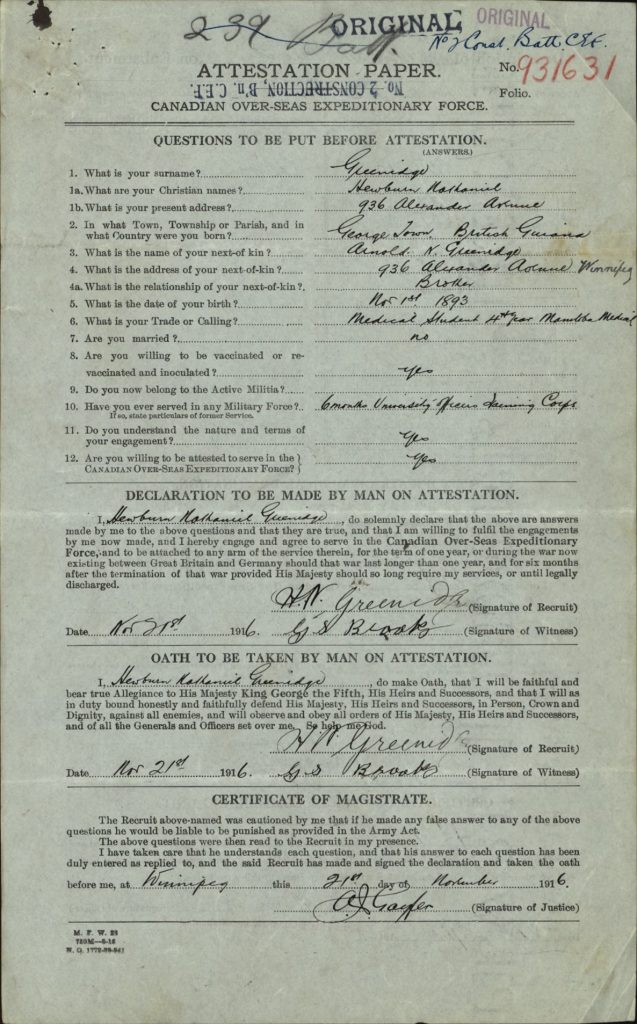 ORIGINAL ORIGINAL
239 Batt. No 2 Const. Batt. C.E.F.
ATTESTATION PAPER. No. 931631
No. 2 CONSTRUCTION, B'n, C.E.F.
Folio.
CANADIAN OVER-SEAS EXPEDITIONARY FORCE.
QUESTIONS TO BE PUT BEFORE ATTESTATION.
(ANSWERS.)
1. What is your surname? Greenidge
1a. What are your Christian names? Hewburn Nathaniel
1b. What is your present address? 936 Alexander Avenue
2. In what Town, Township or Parish, and in
what Country were you born? George Town British Guiana
3. What is the name of your next-of kin? Arnold N. Greenidge
4. What is the address of your next-of-kin? 936 Alexander Avenue Winnipeg
4a. What is the relationship of your next-of-kin? Brother
5. What is the date of your birth? Nov 1st 1893
6. What is your Trade or Calling? Medical Student 4th year Manitoba Medical
7. Are you married? no
8. Are you willing to be vaccinated or re-
vaccinated and inoculated? yes
9. Do you now belong to the Active Militia?
10. Have you ever served in any Military Force? 6 months University Officers Training Corps
If so, state particulars of former Service.
11. Do you understand the nature and terms of
your engagement? Yes
12. Are you willing to be attested to serve in the
CANADIAN OVER-SEAS EXPEDITIONARY FORCE? Yes
DECLARATION TO BE MADE BY MAN ON ATTESTATION.
I, Hewburn Nathaniel Greenidge, do solemnly declare that the above are answers
made by me to the above questions and that they are true, and that I am willing to fulfil the engagements
by me now made, and I hereby engage and agree to serve in the Canadian Over-Seas Expeditionary
Force, and to be attached to any arm of the service therein, for the term of one year, or during the war now
existing between Great Britain and Germany should that war last longer than one year, and for six months
after the termination of that war provided His Majesty should so long require my services, or until legally
discharged.
H.N. Greenidge (Signature of Recruit)
Date Nov 21st 1916. G S Brooks (Signature of Witness)
OATH TO BE TAKEN BY MAN ON ATTESTATION.
I, Hewburn Nathaniel Greenidge, do make Oath, that I will be faithful and
bear true Allegiance to His Majesty King George the Fifth, His Heirs and Successors, and that I will as
in duty bound honestly and faithfully defend His Majesty, His Heirs and Successors, in Person, Crown and
Dignity, against all enemies, and will observe and obey all orders of His Majesty, His Heirs and Successors,
and of all the Generals and Officers set over me. So help me God.
H.N. Greenidge (Signature of Recruit)
Date Nov 21st 1916. G S Brooks (Signature of Witness)
CERTIFICATE OF MAGISTRATE.
The Recruit above-named was cautioned by me that if he made any false answer to any of the above
questions he would be liable to be punished as provided in the Army Act.
The above questions were then read to the Recruit in my presence.
I have taken care that he understands each question, and that his answer to each question has been
duly entered as replied to, and the said Recruit has made and signed the declaration and taken the oath
before me, at Winnipeg this 21st day of November 1916.
(Signature of Justice)
M. F. W. 23
H. Q. 1772-39-841